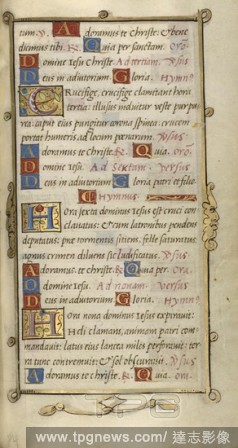 tum. V. Adoramus te Christe. & bene
dicimus tibi. R. Quia per sanctam. oro.
Domine Jesu Christe. Ad tertiam. Vsus
Deus in adiutorium. Gloria. Hymn⁹
Crucifige, crucifige, clamitant hora
tertia: illusus induitur veste purpu
rea: caput eius pungitur corona spinea: crucem
portat humeris ad locum poenarum. Vsus
Adoramus te christe. R. Quia. Oro.
Domine iesu. Ad Sextam. Versus
Deus in adiutorium. Gloria patri et filio
Hymnus.
Hora sexta dominus Iesus est cruci con
clauatus: & cum latronibus pendens
deputatus: prae tormentis sitiens, felle saturatus
agnus crimen diluens sic ludificatus. Vsus
Adoramus. te christe. R. Quia per. Ora.
Domine iesu. Ad nonam. Versus
Deus in adiutorium. Gloria. Hymn⁹
Hora nona dominus Iesus expirauit:
Heli clamans, animam patri com
mandauit: latus eius lancea miles perforauit: ter
ra tunc contremuit & sol obscuratus. Vsus
Adoramus te christe. R. Quia. oro.
TPG
www.tpgnews.com / 達志影像